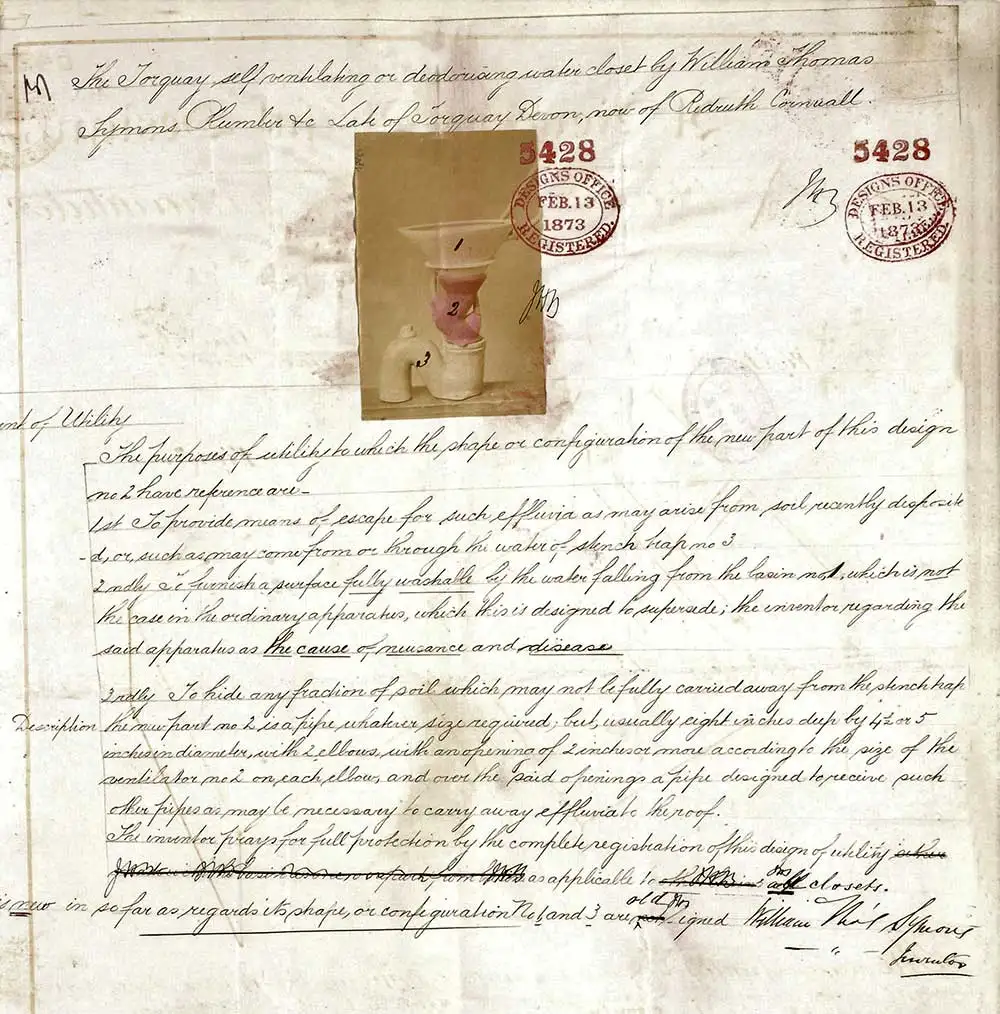 The Torquay self ventilating or deodorising water closet by William Thomas
Symons Plumber &c Late of Torquay Devon, now of Redruth Cornwall.
5428
DESIGNS OFFICE
FEB. 13
1873
REGISTERED
5428
DESIGNS OFFICE
FEB. 13
1873
REGISTERED
1
2
3
nt of Utility
The purposes of utility to which the shape or configuration of the new part of this design
no 2 have reference are-
1st To provide means of escape for such effluvia as may arise from soil recently deposite
-d, or, such as may come from or through the water of stench trap no 3
2ndly To furnish a surface fully washable by the water falling from the basin no 1, which is not
the case in the ordinary apparatus, which this is designed to supersede; the inventor regarding the
said apparatus as the cause of neusance and disease
3rdly To hide any fraction of soil which may not be fully carried away from the stench trap
Description the new part no 2 is a pipe whatever size required; but, usually eight inches deep by 4½ or 5
inches in diameter, with 2 elbows, with an opening of 2 inches or more according to the size of the
ventilator no 2 on each elbow, and over the said openings a pipe designed to receive such
other pipes as may be necessary to carry away effluvia to the roof.
The inventor prays for full protection by the complete registration of this design of utility
as applicable to all closets.
is new in so far as regards its shape, or configuration No 1 and 3 are old signed William Thos Symons
Inventor